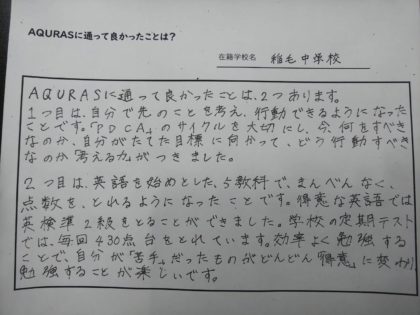 AQURASに通って良かったことは?
在籍学校名 稲毛中学校
AQURASに通って良かったことは、2つあります。
1つ目は、自分で先のことを考え、行動できるようになった
ことです。「PDCA」のサイクルを大切にし、今、何をすべき
なのか、自分がたてた目標に向かって、どう行動すべき
なのか考える力がつきました。
2つ目は、英語を始めとした、5教科で、まんべんなく、
点数を、とれるようになったことです。得意な英語では
英検準2級をとることができました。学校の定期テスト
では、毎回430点台をとれています。効率よく勉強する
ことで、自分が「苦手」だったものがどんどん「得意」に変わり
勉強することが楽しいです。